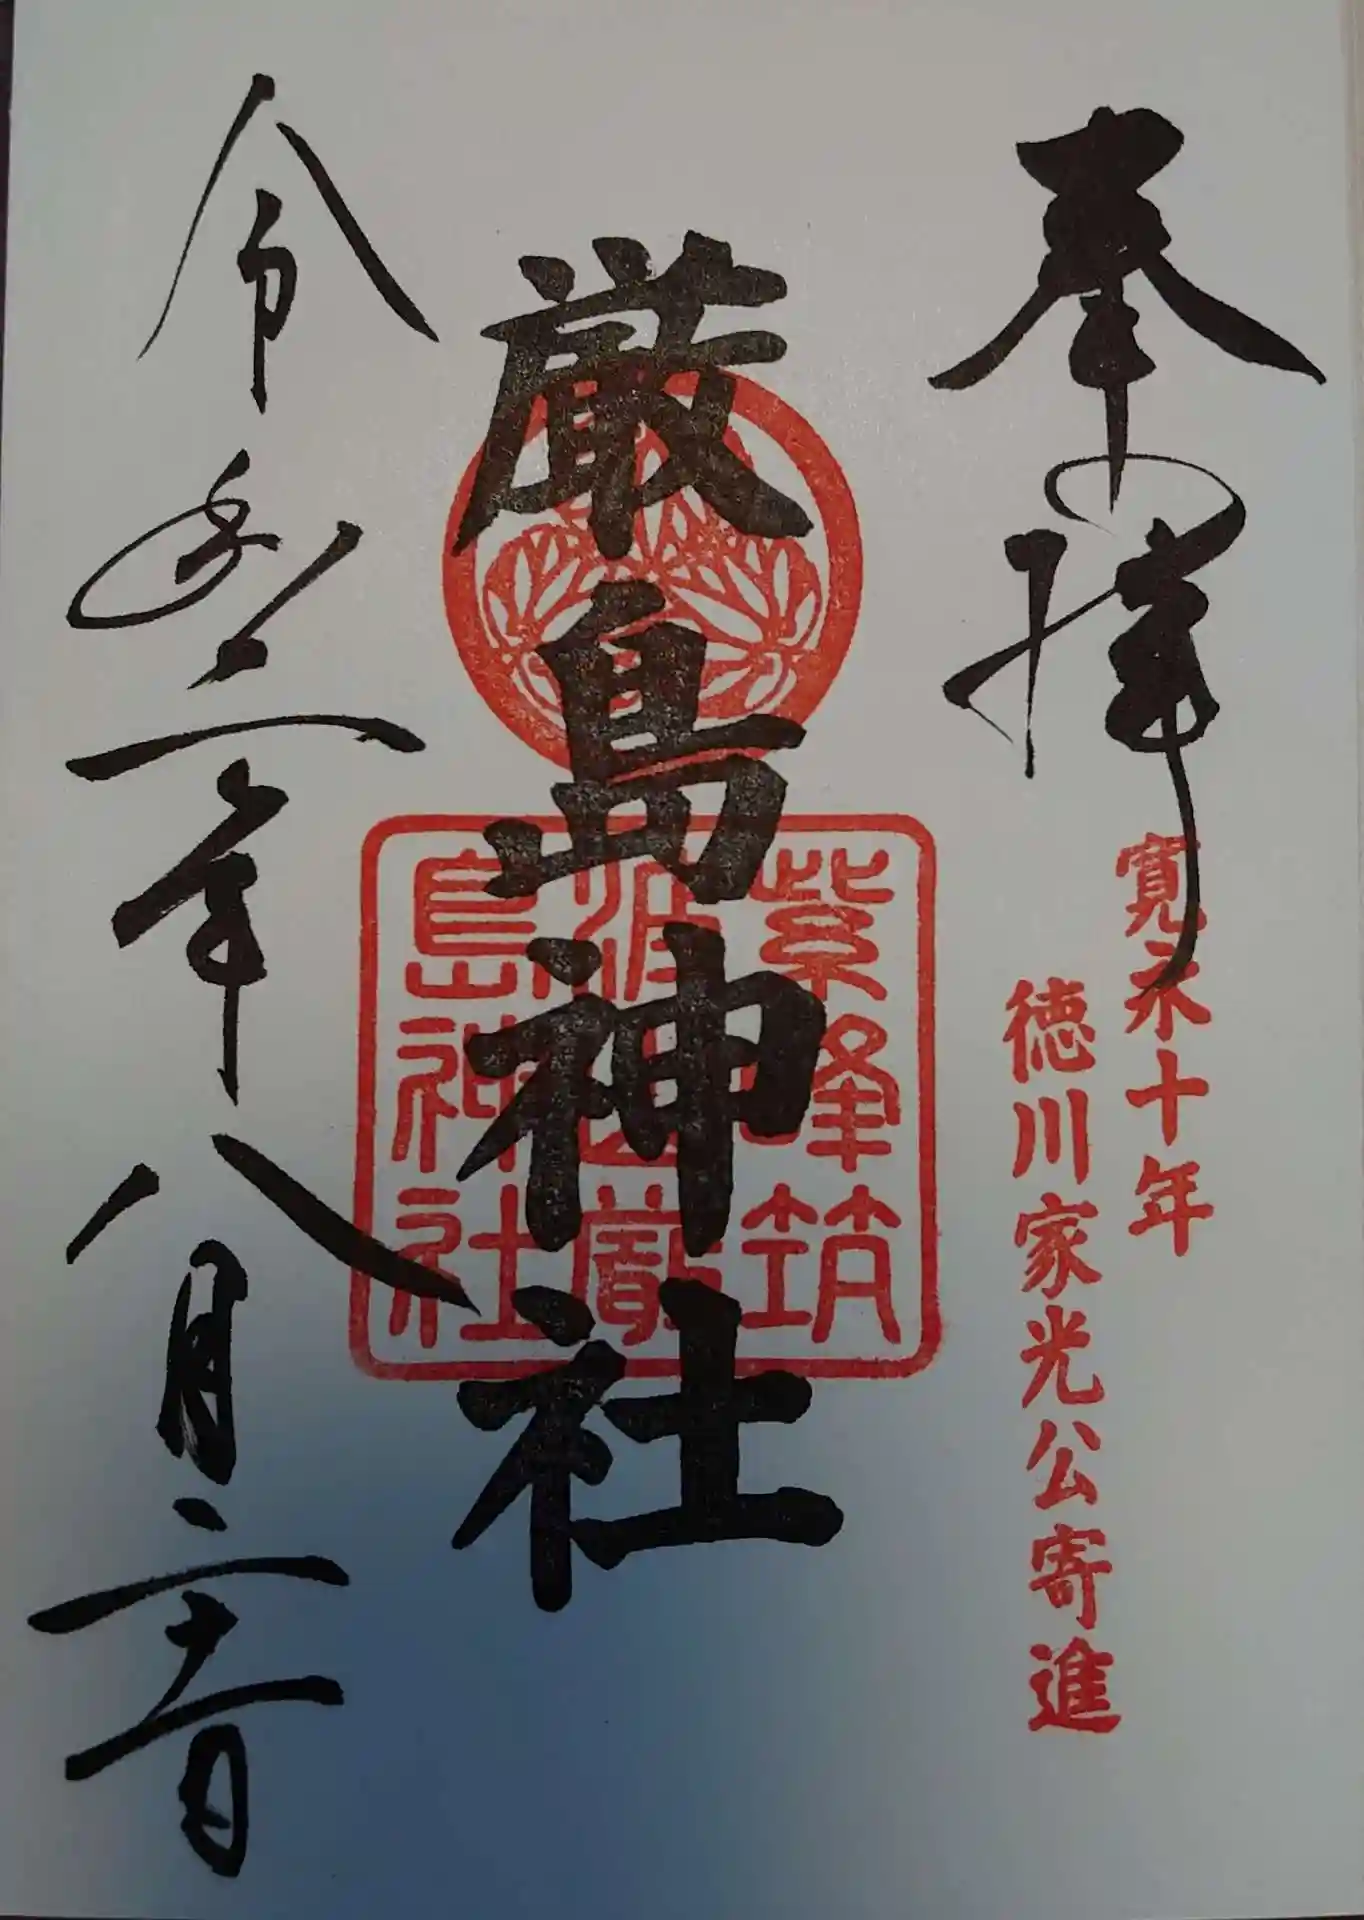 奉拝
寛永十年
徳川家光公寄進
厳島神社
紫峰筑
波山厳
島神社
令和二年八月二十一日